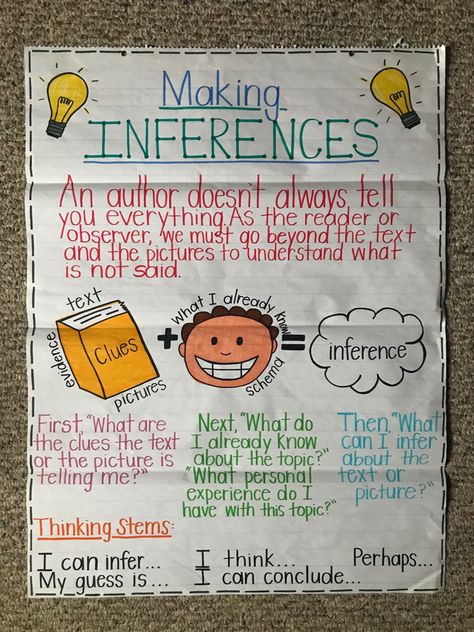 Making
INFERENCES
An author doesn't always tell
you everything. As the reader or
observer, we must go beyond the text
and the pictures to understand what
is not said.
text
evidence
Clues
pictures
+
what I already know
schema
=
inference
First, "What are
the clues the text
or the picture is
telling me?"
Next, "What do
I already know
about the topic?"
"What personal
experience do I
have with this topic?"
Then, "What
can I infer
about the
text or
picture?"
Thinking Stems:
I can infer... I think... Perhaps...
My guess is... I can conclude...